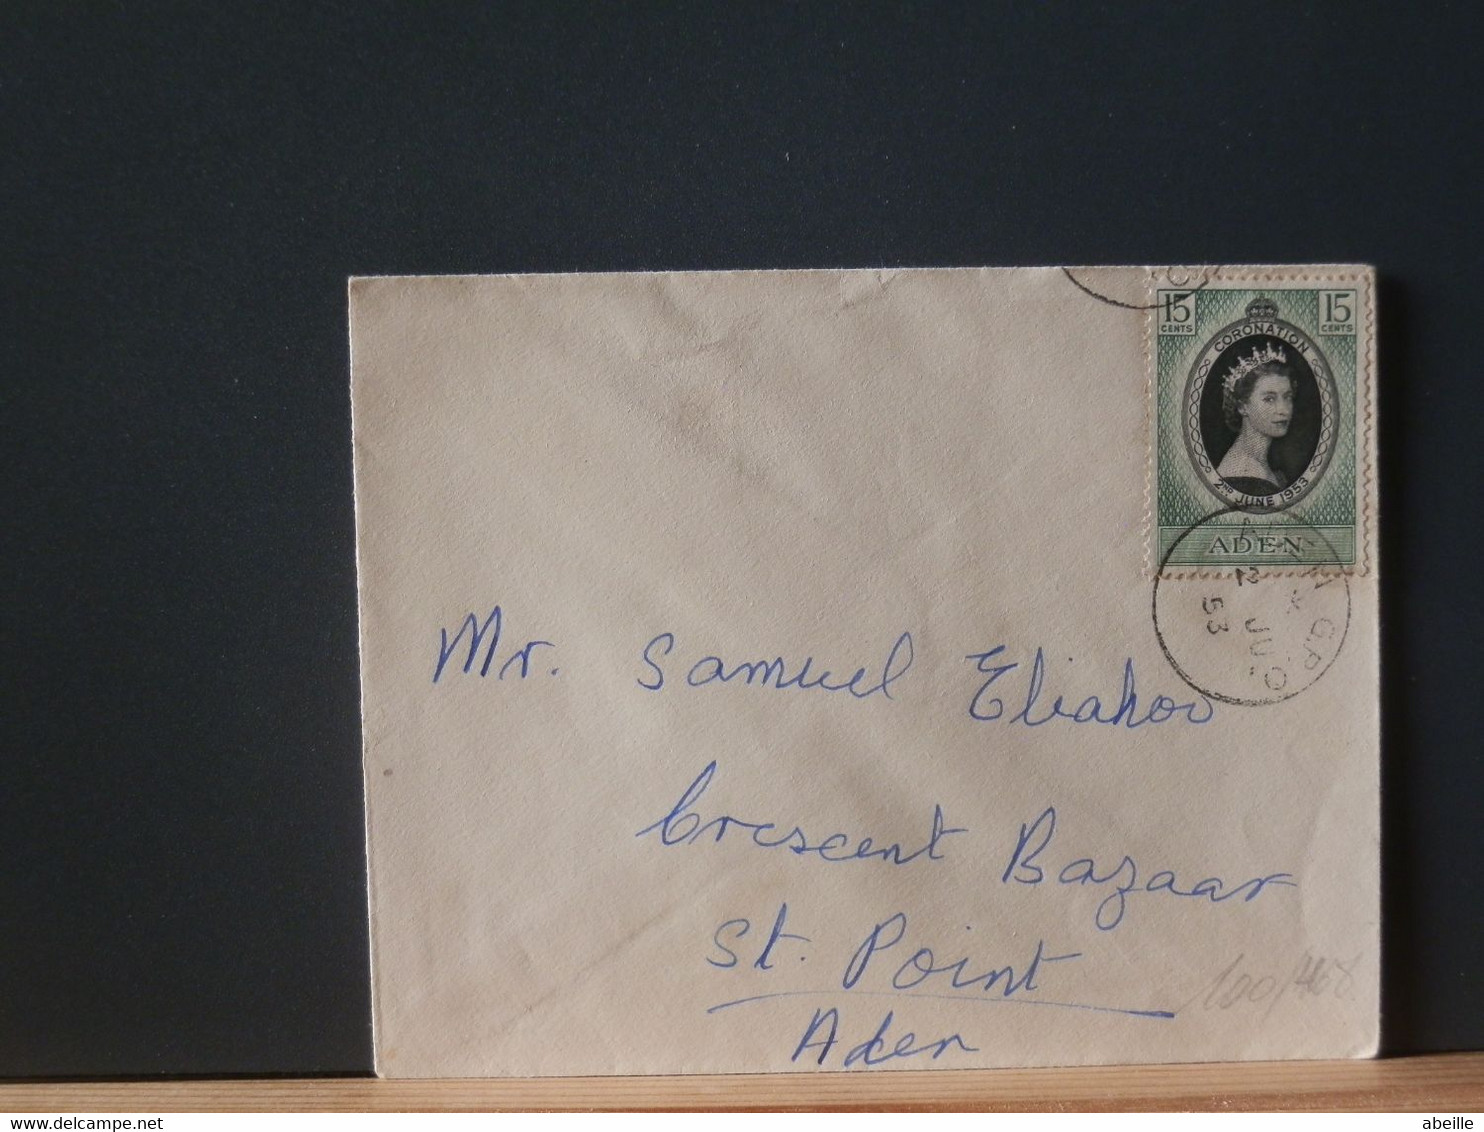 15 CENTS 15 CENTS
CORONATION
2ND JUNE 1953
ADEN
G.P.O.
2 JU
53
Mr. Samuel Eliahoo
Crescent Bazaar
St. Point
Aden
100/468
abeille